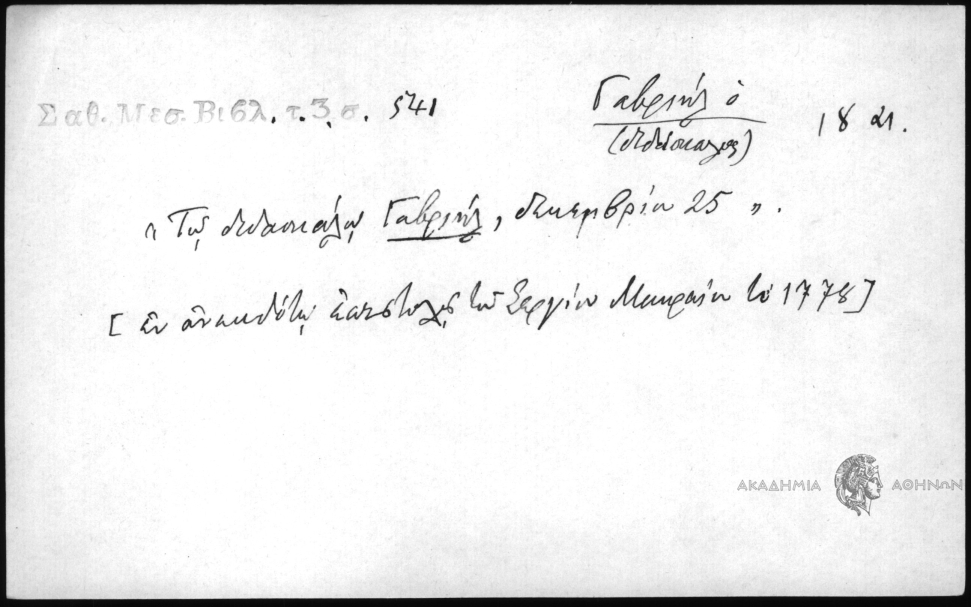 Σαθ. Μεσ. Βιβλ. τ. 3, σ. 541
Γαβριήλ ὁ
(διδάσκαλος)
18 αι.
"Τῷ διδασκάλῳ Γαβριήλ, δεκεμβρίου 25".
[ἐν ἀνεκδότῳ ἐπιστολῇ τοῦ Σεργίου Μακραίου τῷ 1778]
ΑΚΑΔΗΜΙΑ ΑΘΗΝΩΝ